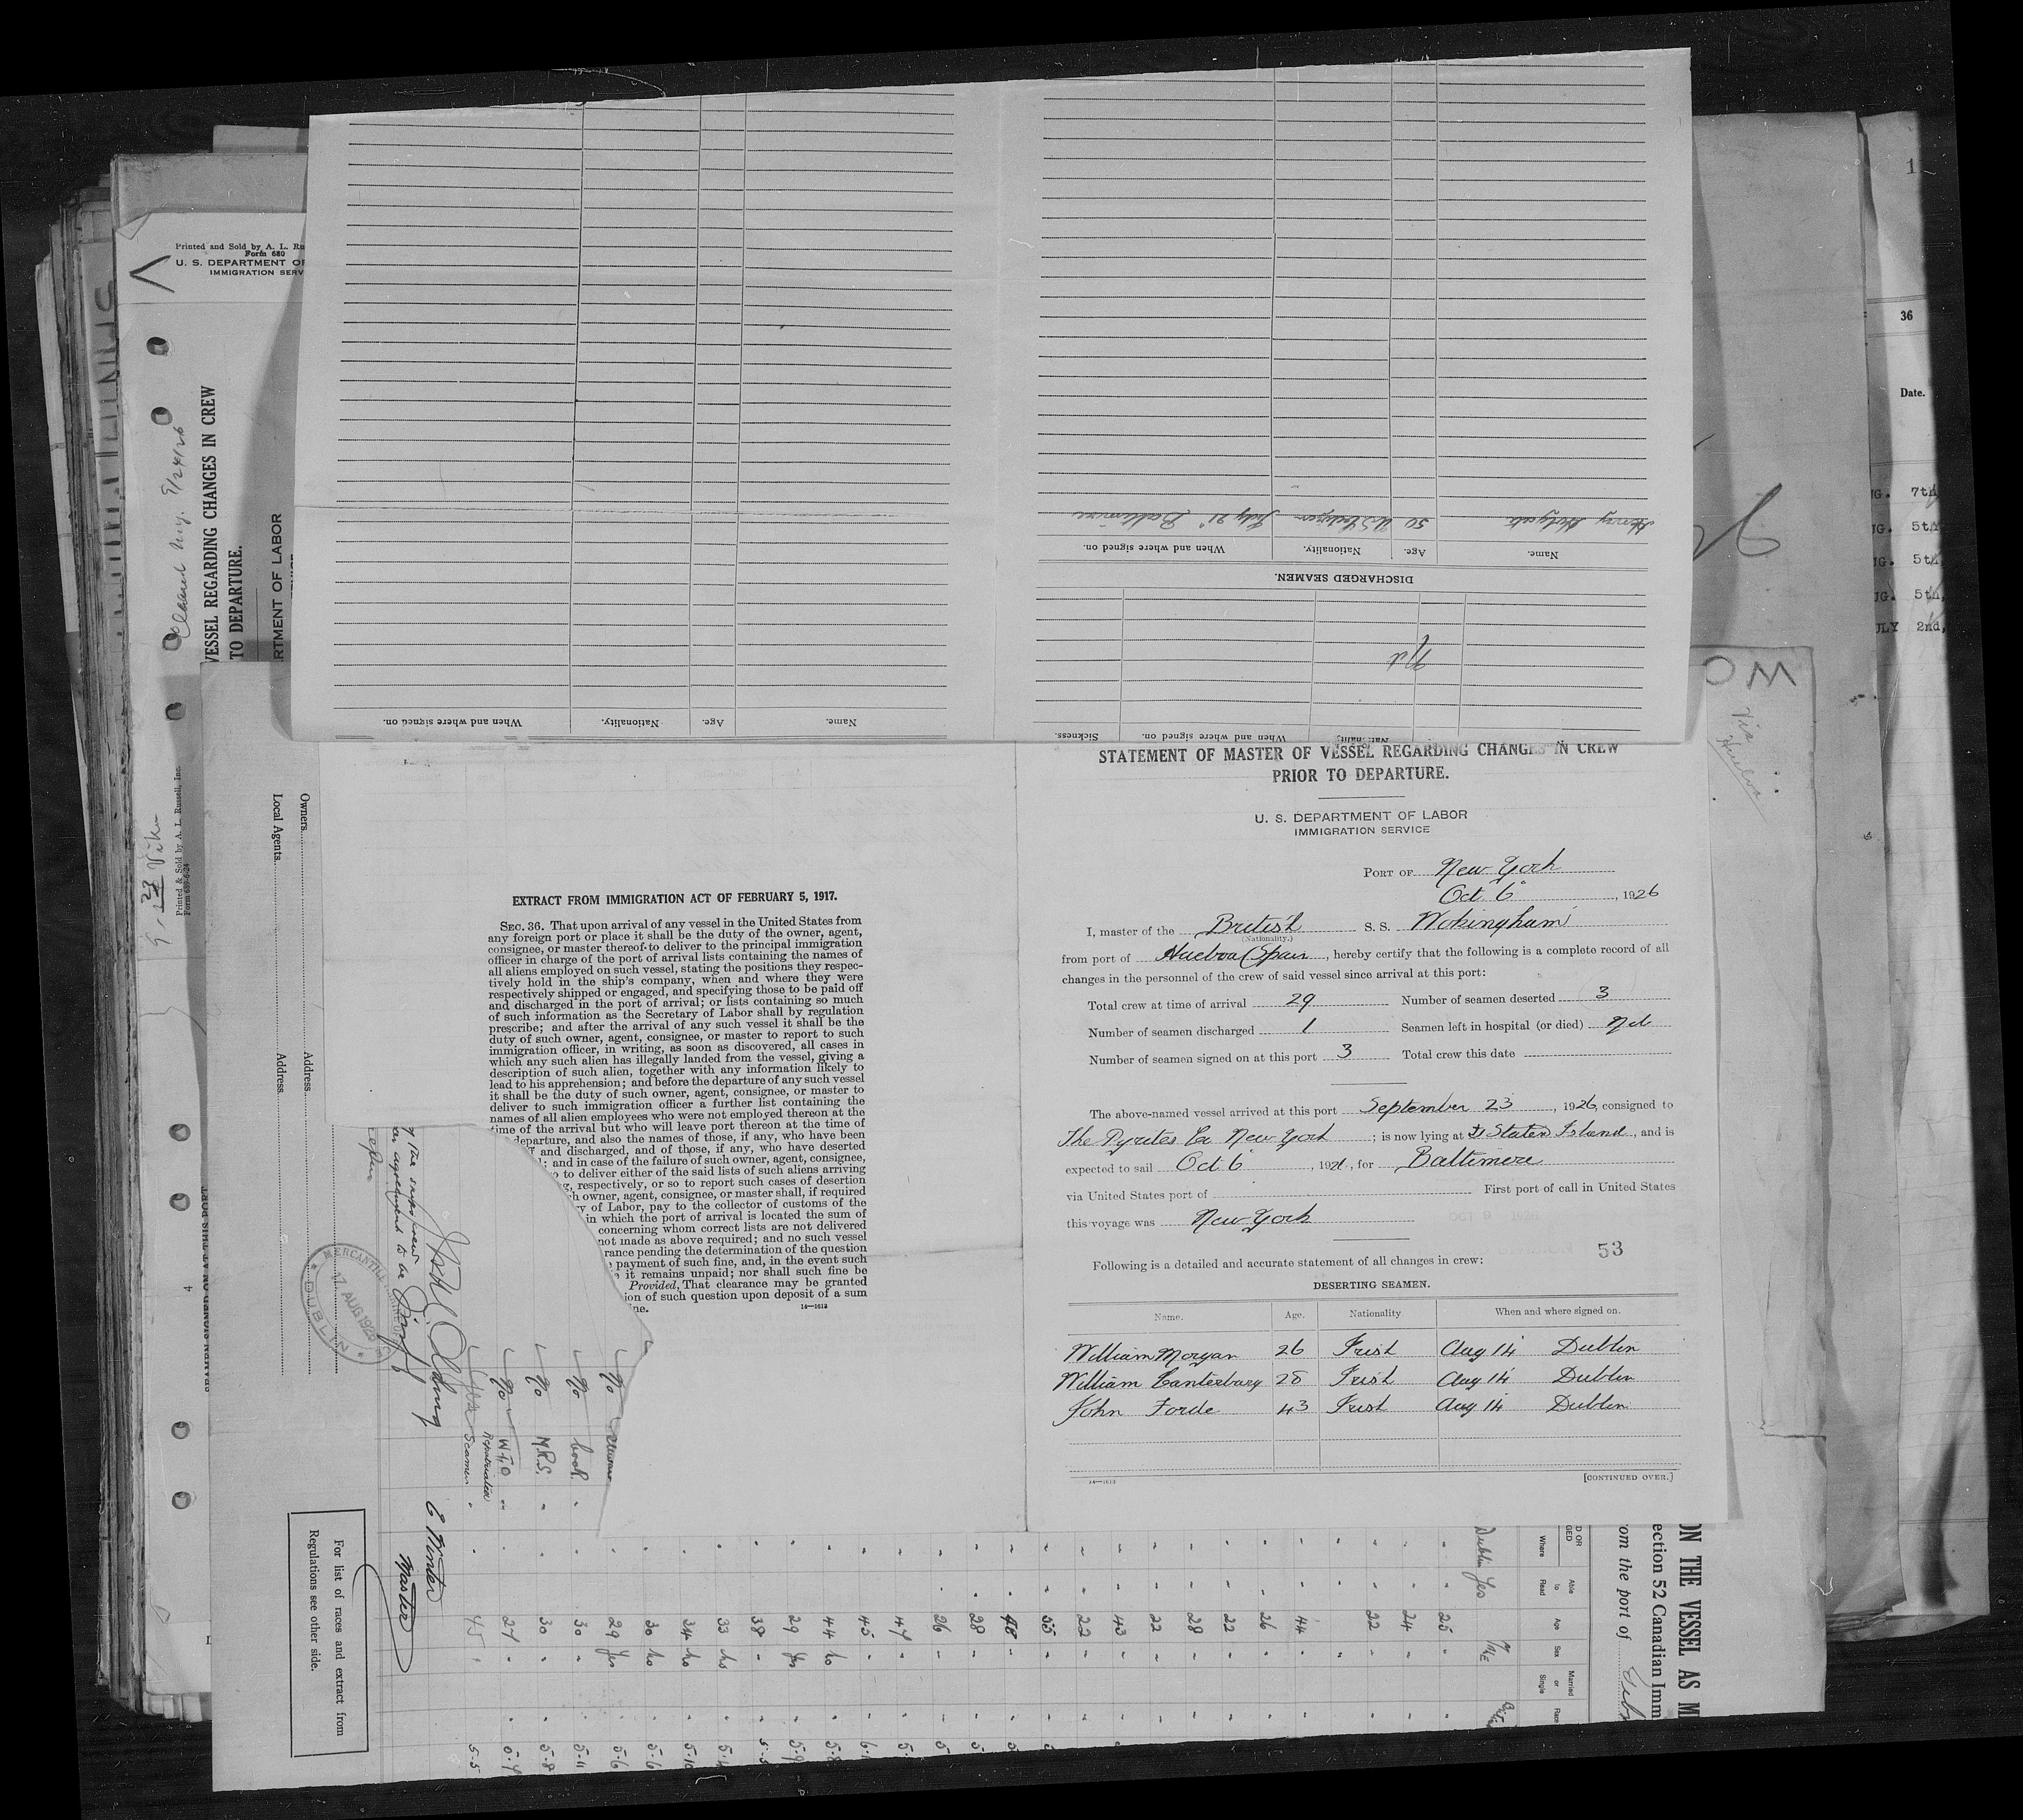 Printed and Sold by A. L. Ru
Form 680
U. S. DEPARTMENT OF
IMMIGRATION SERV
VESSEL REGARDING CHANGES IN CREW
TO DEPARTURE.
RTMENT OF LABOR
Printed & Sold by A. L. Russell, Inc.
Form 689-6-24
SEAMEN SIGNED ON AT THIS PORT
4
Owners
Address
Local Agents
Address
1
36
Date.
UG. 7th
UG. 5th
UG. 5th
UG. 5th,
JULY 2nd,
Via
Huelva
Name. Age. Nationality. When and where signed on.
When and where signed on. Sickness.
Nil
DISCHARGED SEAMEN.
Name. Age. Nationality. When and where signed on.
Henry 50 U S Citizen July 21° Baltimore
STATEMENT OF MASTER OF VESSEL REGARDING CHANGES IN CREW
PRIOR TO DEPARTURE.
U. S. DEPARTMENT OF LABOR
IMMIGRATION SERVICE
PORT OF New York
Oct 6, 1926
I, master of the British S. S. Wokingham
(Nationality.)
from port of Huelva Spain, hereby certify that the following is a complete record of all
changes in the personnel of the crew of said vessel since arrival at this port:
Total crew at time of arrival 29 Number of seamen deserted 3
Number of seamen discharged 1 Seamen left in hospital (or died) Nil
Number of seamen signed on at this port 3 Total crew this date
The above-named vessel arrived at this port September 23, 1926, consigned to
The Pyrites Co New York; is now lying at Staten Island, and is
expected to sail Oct 6, 1926, for Baltimore
via United States port of First port of call in United States
this voyage was New York
OCT 9 1926
53
Following is a detailed and accurate statement of all changes in crew:
DESERTING SEAMEN.
Name. Age. Nationality When and where signed on.
William Morgan 26 Irish Aug 14 Dublin
William Canterbury 28 Irish Aug 14 Dublin
John Forde 43 Irish Aug 14 Dublin
14—1613
[CONTINUED OVER.]
EXTRACT FROM IMMIGRATION ACT OF FEBRUARY 5, 1917.
SEC. 36. That upon arrival of any vessel in the United States from
any foreign port or place it shall be the duty of the owner, agent,
consignee, or master thereof to deliver to the principal immigration
officer in charge of the port of arrival lists containing the names of
all aliens employed on such vessel, stating the positions they respec-
tively hold in the ship's company, when and where they were
respectively shipped or engaged, and specifying those to be paid off
and discharged in the port of arrival; or lists containing so much
of such information as the Secretary of Labor shall by regulation
prescribe; and after the arrival of any such vessel it shall be the
duty of such owner, agent, consignee, or master to report to such
immigration officer, in writing, as soon as discovered, all cases in
which any such alien has illegally landed from the vessel, giving a
description of such alien, together with any information likely to
lead to his apprehension; and before the departure of any such vessel
it shall be the duty of such owner, agent, consignee, or master to
deliver to such immigration officer a further list containing the
names of all alien employees who were not employed thereon at the
time of the arrival but who will leave port thereon at the time of
departure, and also the names of those, if any, who have been
and discharged, and of those, if any, who have deserted
; and in case of the failure of such owner, agent, consignee,
to deliver either of the said lists of such aliens arriving
, respectively, or so to report such cases of desertion
h owner, agent, consignee, or master shall, if required
ry of Labor, pay to the collector of customs of the
in which the port of arrival is located the sum of
concerning whom correct lists are not delivered
not made as above required; and no such vessel
rance pending the determination of the question
payment of such fine, and, in the event such
it remains unpaid; nor shall such fine be
Provided, That clearance may be granted
ion of such question upon deposit of a sum
ine.
14—1613
MERCANTILE
17 AUG 1926
DUBLIN
Master
For list of races and extract from
Regulations see other side.
ON THE VESSEL AS M
ection 52 Canadian Imm
om the port of
Where
Able to Read
Age
Sex
Married or Single
Race
Dublin Yes
25
24
22
44
26
22
28
22
43
22
55
48
28
26
47
45
44 No
29 Yes
38
33 No
34 No
30 No
29 Yes
30
30
27
45
No Cook
No M.R.S.
Seamen
5.5
5.7
5.8
5.11
5.6
5.6
5.10